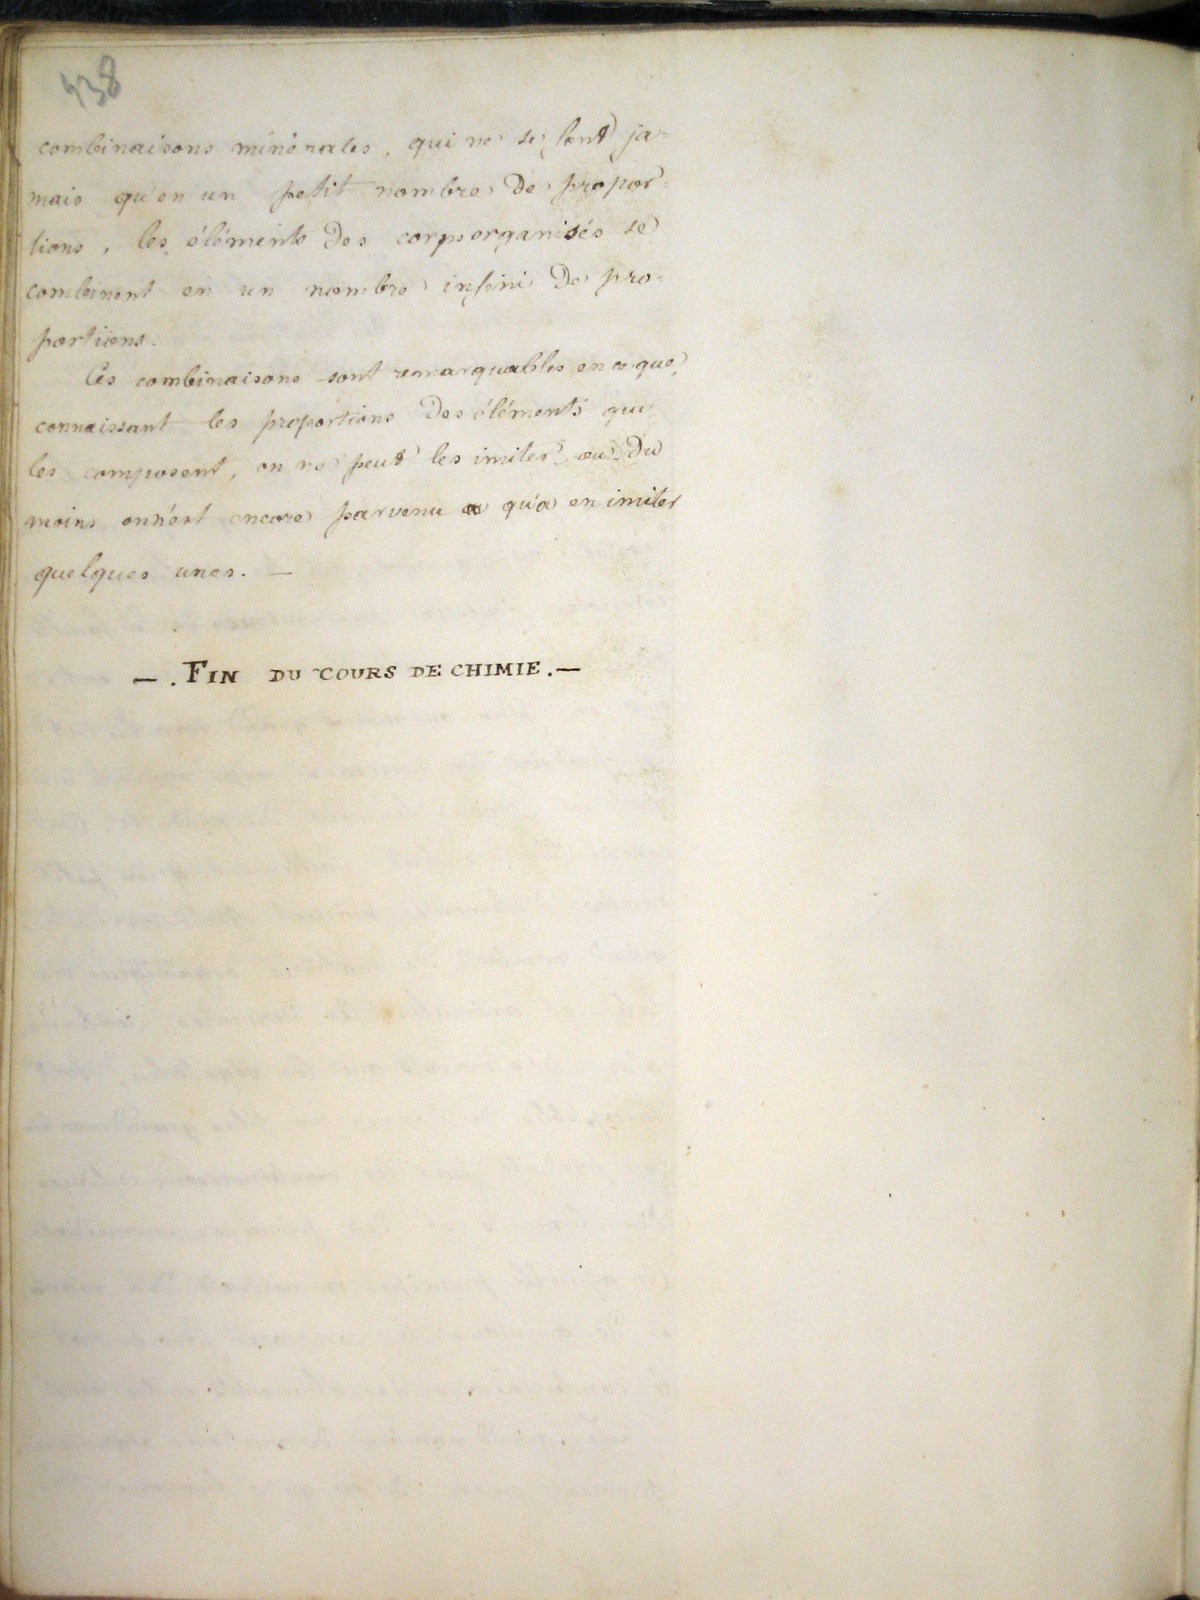 438
combinaisons minérales, qui ne se font ja=
mais qu'en un petit nombre de propor=
tions, les éléments des corps organisés se
combinent en un nombre infini de pro=
portions.
Ces combinaisons sont remarquables en ce que,
connaissant les proportions des éléments qui
les composent, on ne peut les imiter ou du
moins on n'est encore parvenu a qu'a en imiter
quelques unes. —
— . FIN DU COURS DE CHIMIE. —